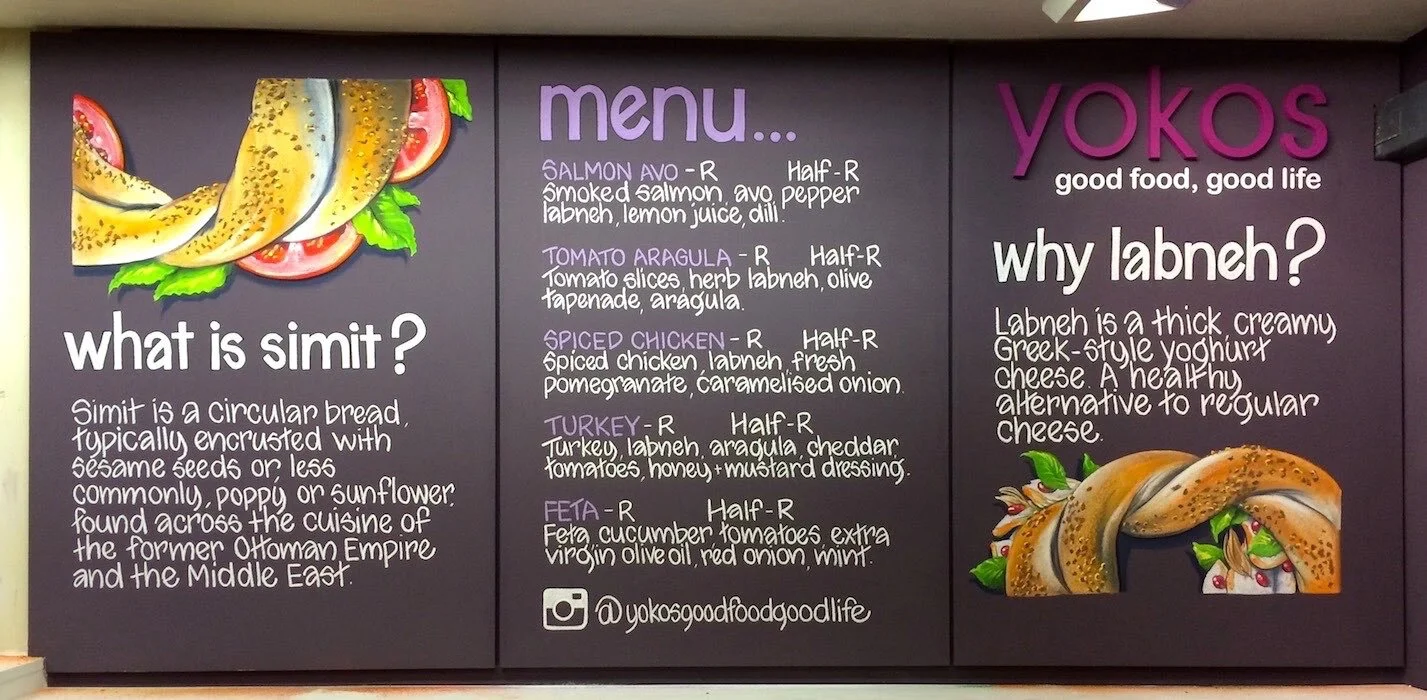 what is simit?
Simit is a circular bread,
typically encrusted with
sesame seeds or, less
commonly, poppy or sunflower,
found across the cuisine of
the former Ottoman Empire
and the Middle East.
menu...
SALMON AVO - R Half - R
Smoked salmon, avo, pepper
labneh, lemon juice, dill.
TOMATO ARAGULA - R Half-R
Tomato slices, herb labneh, olive
tapenade, aragula.
SPICED CHICKEN - R Half-R
Spiced chicken, labneh, fresh
pomegranate, caramelised onion.
TURKEY - R Half-R
Turkey, labneh, aragula, cheddar,
tomatoes, honey + mustard dressing.
FETA - R Half-R
Feta, cucumber tomatoes, extra
virgin olive oil, red onion, mint.
@yokosgoodfoodgoodlife
yokos
good food, good life
why labneh?
Labneh is a thick, creamy
Greek-style yoghurt
cheese. A healthy
alternative to regular
cheese.